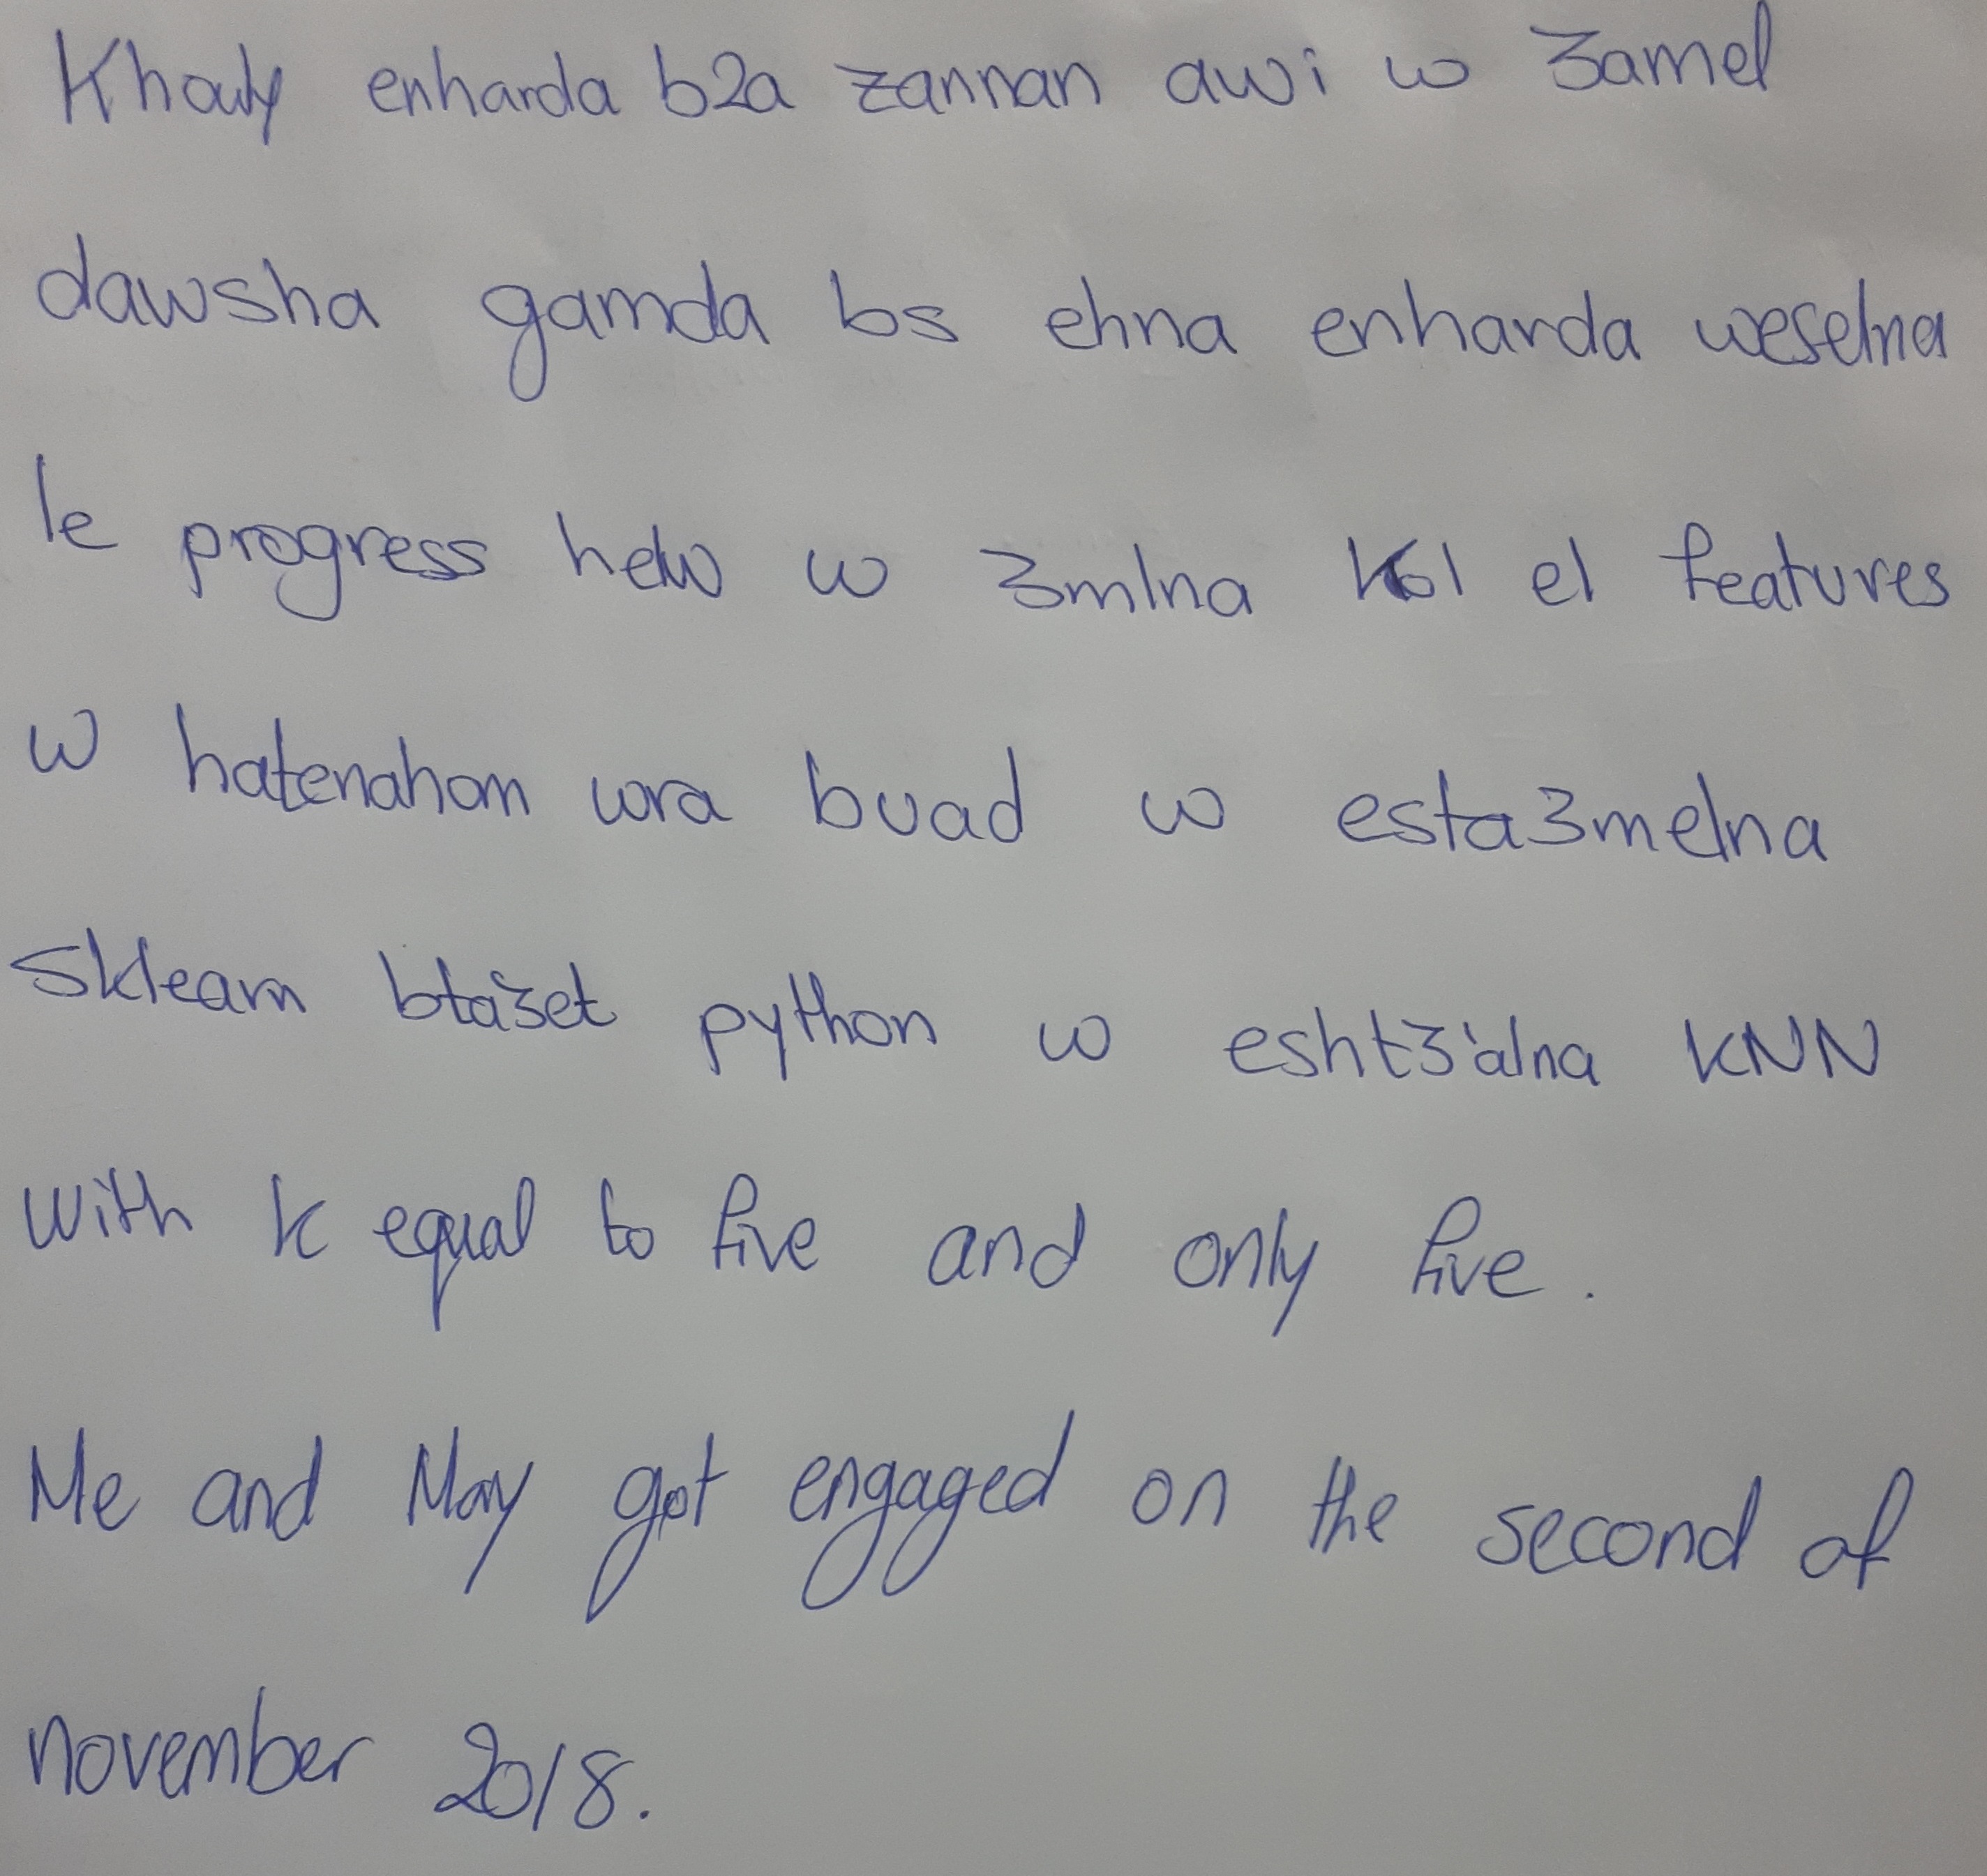 Khaly enharda b2a zannan awi w 3amel
dawsha gamda bs ehna enharda weselna
le progress helw w 3mlna kol el features
w hatenahom wra buad w esta3melna
sklearn bta3et python w esht3'alna KNN
with k equal to five and only five.
Me and May got engaged on the second of
november 2018.